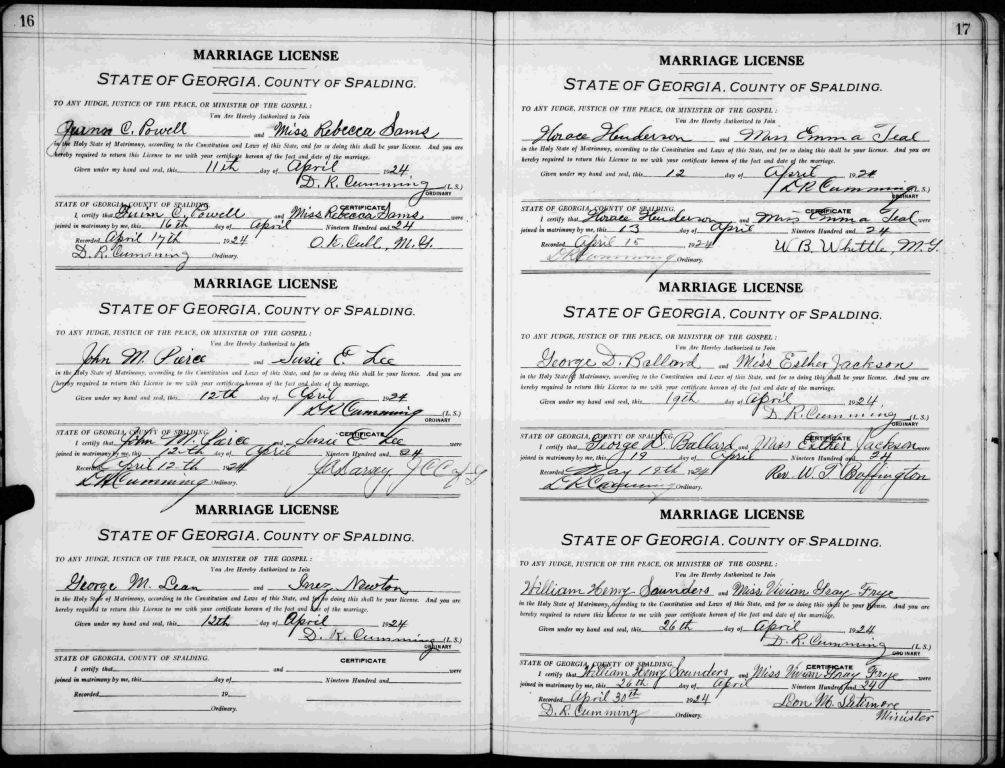 16
MARRIAGE LICENSE
STATE OF GEORGIA, COUNTY OF SPALDING.
TO ANY JUDGE, JUSTICE OF THE PEACE, OR MINISTER OF THE GOSPEL:
You Are Hereby Authorized to Join
C. Powell and Miss Rebecca Sams
in the Holy State of Matrimony, according to the Constitution and Laws of this State, and for so doing this shall be your license. And you are
hereby required to return this License to me with your certificate hereon of the fact and date of the marriage.
Given under my hand and seal, this 11th day of April 1924
D. R. Cumming (L.S.)
ORDINARY
STATE OF GEORGIA, COUNTY OF SPALDING. CERTIFICATE
I certify that C. Powell and Miss Rebecca Sams were
joined in matrimony by me, this 16th day of April Nineteen Hundred and 24
Recorded April 17th 1924 O.K. Cull, M.G.
D. R. Cumming Ordinary.
MARRIAGE LICENSE
STATE OF GEORGIA, COUNTY OF SPALDING.
TO ANY JUDGE, JUSTICE OF THE PEACE, OR MINISTER OF THE GOSPEL:
You Are Hereby Authorized to Join
John M. Pierce and Susie E Lee
in the Holy State of Matrimony, according to the Constitution and Laws of this State, and for so doing this shall be your license. And you are
hereby required to return this License to me with your certificate hereon of the fact and date of the marriage.
Given under my hand and seal, this 12th day of April 1924
D R Cumming (L.S.)
ORDINARY
STATE OF GEORGIA, COUNTY OF SPALDING. CERTIFICATE
I certify that John M. Pierce and Susie E Lee were
joined in matrimony by me, this 12-th day of April Nineteen Hundred and 24
Recorded April 12-th 1924
D R Cumming Ordinary.
MARRIAGE LICENSE
STATE OF GEORGIA, COUNTY OF SPALDING.
TO ANY JUDGE, JUSTICE OF THE PEACE, OR MINISTER OF THE GOSPEL:
You Are Hereby Authorized to Join
George M. Lean and Inez Newton
in the Holy State of Matrimony, according to the Constitution and Laws of this State, and for so doing this shall be your license. And you are
hereby required to return this License to me with your certificate hereon of the fact and date of the marriage.
Given under my hand and seal, this 12th day of April 1924
D. R. Cumming (L.S.)
ORDINARY
STATE OF GEORGIA, COUNTY OF SPALDING. CERTIFICATE
I certify that and were
joined in matrimony by me, this day of Nineteen Hundred and
Recorded 19
Ordinary.
17
MARRIAGE LICENSE
STATE OF GEORGIA, COUNTY OF SPALDING.
TO ANY JUDGE, JUSTICE OF THE PEACE, OR MINISTER OF THE GOSPEL:
You Are Hereby Authorized to Join
Horace Henderson and Miss Emma Teal
in the Holy State of Matrimony, according to the Constitution and Laws of this State, and for so doing this shall be your license. And you are
hereby required to return this License to me with your certificate hereon of the fact and date of the marriage.
Given under my hand and seal, this 12 day of April 1924
D R Cumming (L.S.)
ORDINARY
STATE OF GEORGIA, COUNTY OF SPALDING. CERTIFICATE
I certify that Horace Henderson and Miss Emma Teal were
joined in matrimony by me, this 13 day of April Nineteen Hundred and 24
Recorded April 15 1924 W. B. Whittle, M.G.
D R Cumming Ordinary.
MARRIAGE LICENSE
STATE OF GEORGIA, COUNTY OF SPALDING.
TO ANY JUDGE, JUSTICE OF THE PEACE, OR MINISTER OF THE GOSPEL:
You Are Hereby Authorized to Join
George D. Ballard and Miss Esther Jackson
in the Holy State of Matrimony, according to the Constitution and Laws of this State, and for so doing this shall be your license. And you are
hereby required to return this License to me with your certificate hereon of the fact and date of the marriage.
Given under my hand and seal, this 19th day of April 1924
D. R. Cumming (L.S.)
ORDINARY
STATE OF GEORGIA, COUNTY OF SPALDING. CERTIFICATE
I certify that George D. Ballard and Miss Esther Jackson were
joined in matrimony by me, this 19 day of April Nineteen Hundred and 24
Recorded May 19th 1924 Rev. W. T. Boffington
D R Cumming Ordinary.
MARRIAGE LICENSE
STATE OF GEORGIA, COUNTY OF SPALDING.
TO ANY JUDGE, JUSTICE OF THE PEACE, OR MINISTER OF THE GOSPEL:
You Are Hereby Authorized to Join
William Henry Saunders and Miss Vivian Gray Frye
in the Holy State of Matrimony, according to the Constitution and Laws of this State, and for so doing this shall be your license. And you are
hereby required to return this License to me with your certificate hereon of the fact and date of the marriage.
Given under my hand and seal, this 26th day of April 1924
D. R. Cumming (L.S.)
ORDINARY
STATE OF GEORGIA, COUNTY OF SPALDING. CERTIFICATE
I certify that William Henry Saunders and Miss Vivian Gray Frye were
joined in matrimony by me, this 26th day of April Nineteen Hundred and 24
Recorded April 30th 1924 Leon M. Latimore
D. R. Cumming Ordinary. Minister